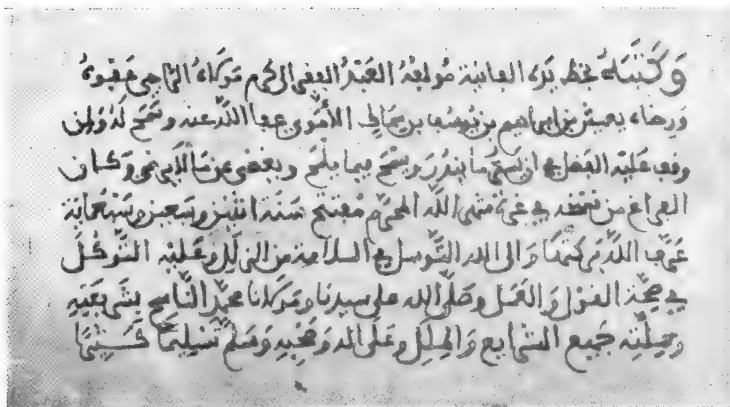 وكتبه بخط يده الفانية مؤلفه العبد الفقير الى كرم مولاه الراجي عفوه
ورضاه يعيش بن ابراهيم بن يوسف بن سماك الأموي عفا الله عنه وسمح له ولمن
وقف عليه الفضل في ان يستر ما يندر ويسمح فيما يلمح ويغضي عن ما وكان
الفراغ من في غرة شهر الله المحرم مفتتح سنة اثنين وسبعين وسبعمائة
عرف الله بركتها والى الله التوسل في السلامة من الزلل وعليه التوكل
في صحة القول والعمل وصلى الله على سيدنا ومولانا محمد الناسخ بشريعته
وملته جميع الشرايع والملل وعلى اله وصحبه وسلم تسليما كثيرا